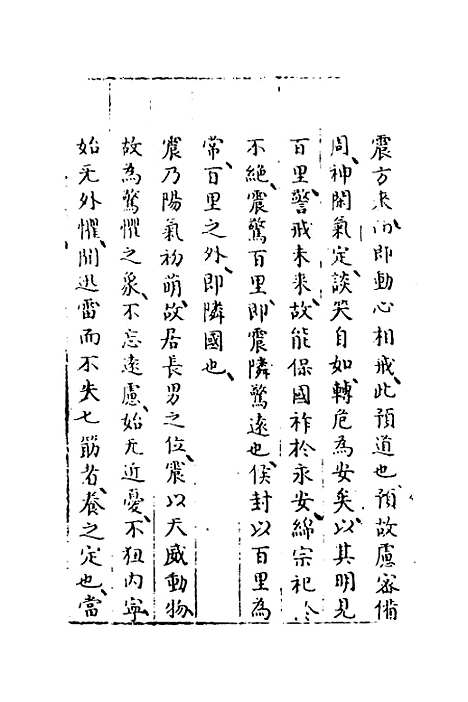 震方来而即動心相戒此預道也預故慮密備
周神閑氣定談笑自如轉危為安矣以其明見
百里警戒未来故能保國祚於永安綿宗祀於
不絶震驚百里即震隣驚遠也侯封以百里為
常百里之外即隣國也
震乃陽氣初萌故居長男之位震以天威動物
故為驚懼之象不忘遠慮始无近憂不狃内寧
始无外懼聞迅雷而不失匕筯者養之定也當